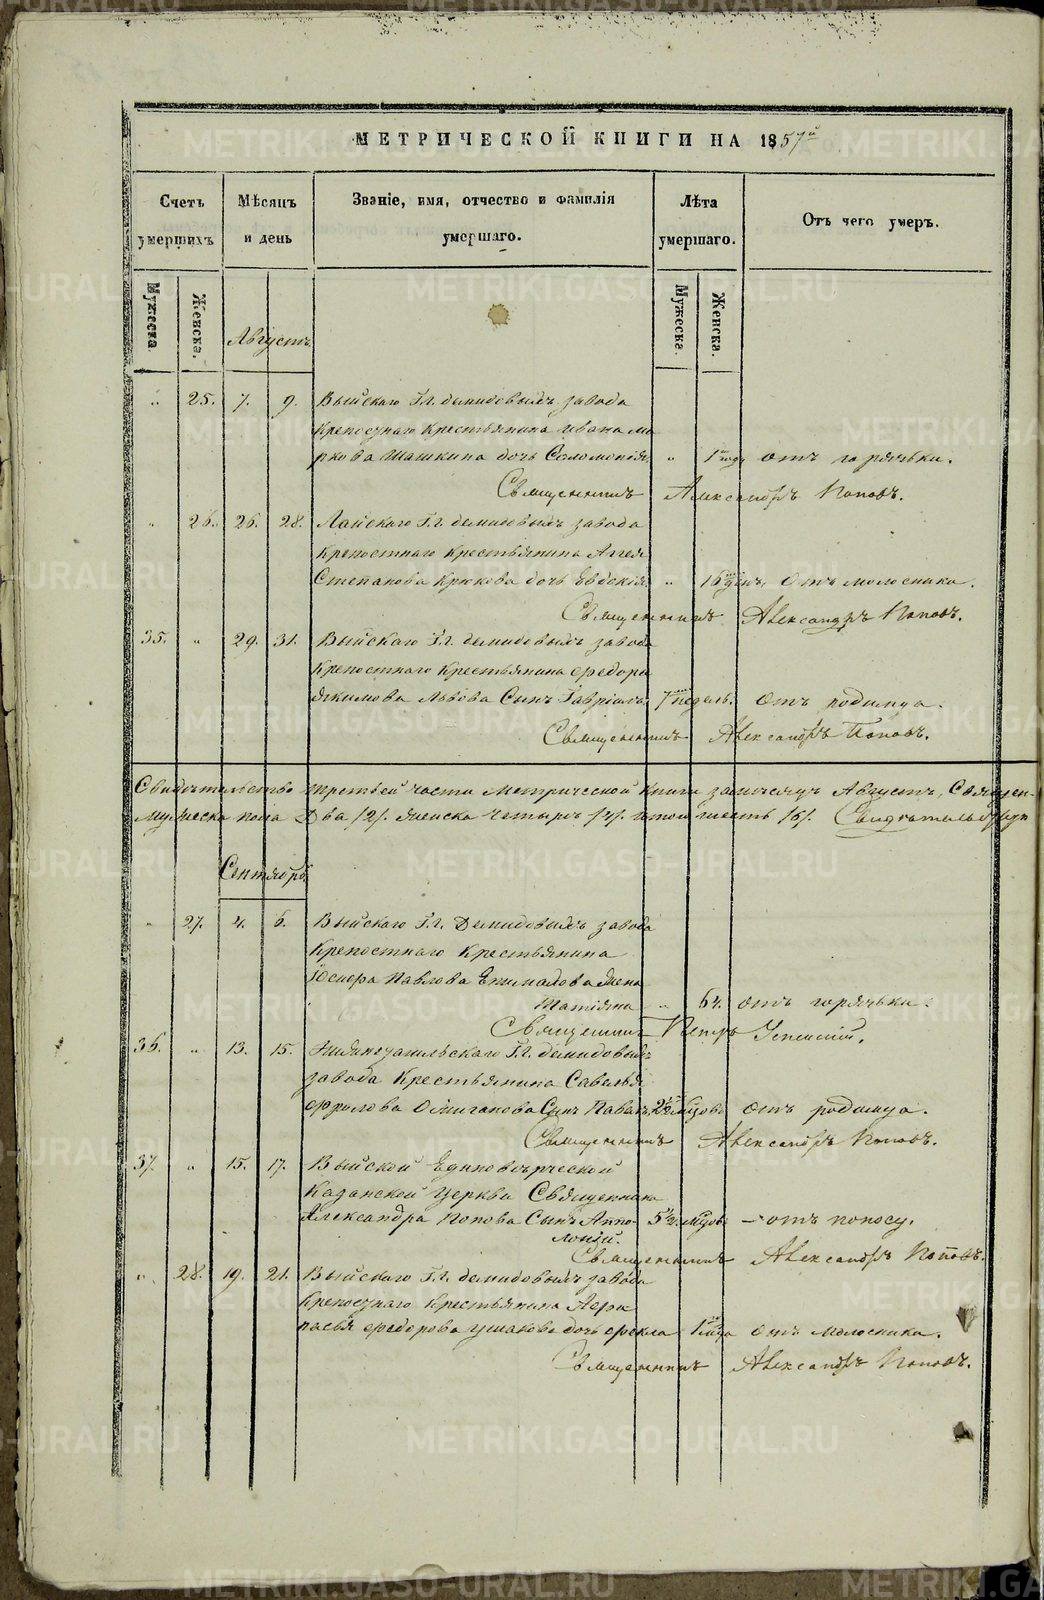 МЕТРИЧЕСКОЙ КНИГИ НА 1857й
Счетъ умершихъ
Мѣсяцъ и день
Званіе, имя, отчество и фамилія умершаго.
Лѣта умершаго.
Отъ чего умеръ.
Мужеска.
Женска.
Мужеска.
Женска.
Августъ
" 25. 7. 9. Выйскаго Гг. демидовыхъ завода
Крепостнаго Крестьянина Ивана Ма
ркова Шашкина дочь Соломонія " 1 года отъ горячьки.
Священникъ Александръ Поповъ.
" 26. 26. 28. Лайскаго Гг. демидовыхъ завода
Крепостнаго Крестьянина Аггея
Степанова Крюкова дочь Евдокія " 16 ден. отъ молосника.
Священникъ Александръ Поповъ.
35. " 29. 31. Выйскаго Гг. демидовыхъ завода
Крепостнаго Крестьянина Федора
Якимова Львова Сынъ Гавріилъ 7 недель. отъ родимца.
Священникъ Александръ Поповъ.
Свидѣтельство третьей части Метрической Книги за месяцъ Августъ, Священ-
мужеска пола Два /2/. женска четыре /4/. итого шесть /6/.
Сентябрь
" 27. 4. 6. Выйскаго Гг. Демидовыхъ завода
Крепостнаго Крестьянина
Павлова жена
Татіяна " 64. отъ горячьки.
Священникъ Петръ Успенскій.
36. " 13. 15. Нижнетагильскаго Гг. демидовыхъ
завода Крестьянина Савелья
Фролова Ожиганова Сынъ Павелъ 2½ мцовъ отъ родимца.
Священникъ Александръ Поповъ.
37. " 15. 17. Выйской Единоверческой
Казанской Церкви Священника
Александра Попова Сынъ Аппо-
лоній. 5½ мцовъ – отъ поносу.
Священникъ Александръ Поповъ.
" 28. 19. 21. Выйскаго Гг. демидовыхъ завода
Крепостнаго Крестьянина Афа
насья Федорова Ушакова дочь Фекла 1 мца отъ молосника.
Священникъ Александръ Поповъ.
METRIKI.GASO-URAL.RU